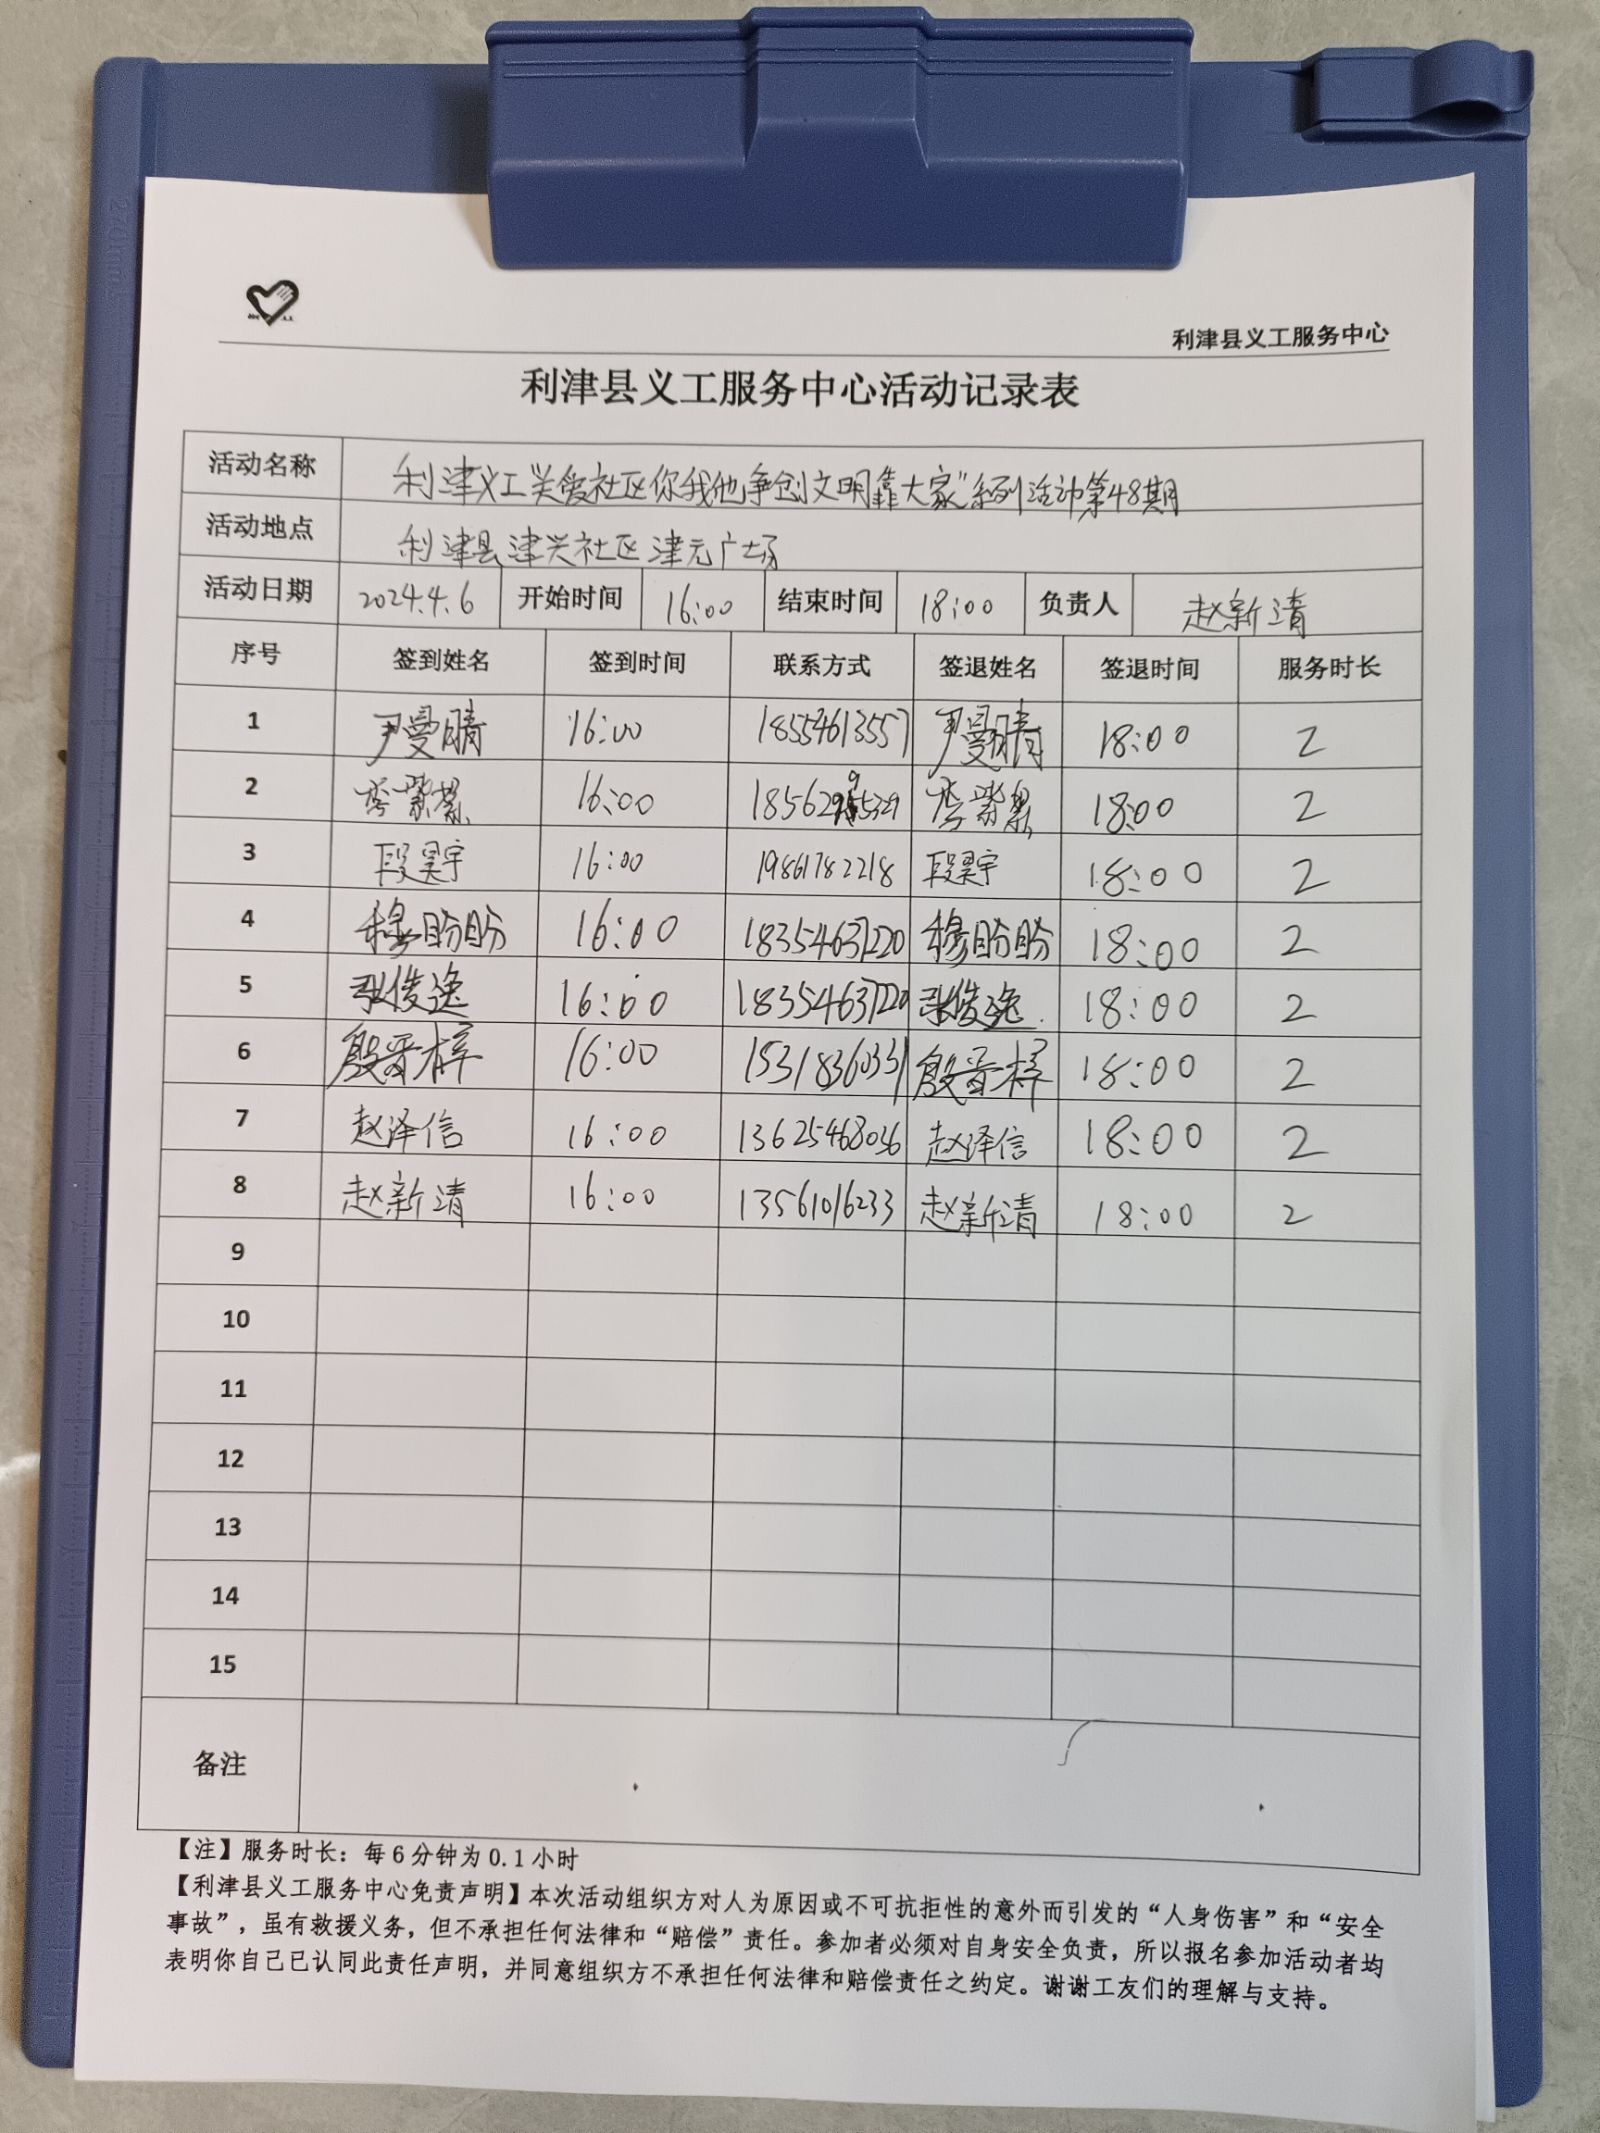 利津县义工服务中心
利津县义工服务中心活动记录表
活动名称 利津义工关爱社区你我他争创文明靠大家"系列活动第48期
活动地点 利津县津兴社区津元广场
活动日期 2024.4.6 开始时间 16:00 结束时间 18:00 负责人 赵新清
序号 签到姓名 签到时间 联系方式 签退姓名 签退时间 服务时长
1 尹曼晴 16:00 18554613557 尹曼晴 18:00 2
2 李紫 16:00 18:00 2
3 段昊宇 16:00 19861782218 段昊宇 18:00 2
4 穆盼盼 16:00 18354637220 穆盼盼 18:00 2
5 张俊逸 16:00 18354637220 张俊逸 18:00 2
6 殷晋梓 16:00 15318360331 殷晋梓 18:00 2
7 赵泽信 16:00 13625468036 赵泽信 18:00 2
8 赵新清 16:00 13561016233 赵新清 18:00 2
9
10
11
12
13
14
15
备注
【注】服务时长：每6分钟为0.1小时
【利津县义工服务中心免责声明】本次活动组织方对人为原因或不可抗拒性的意外而引发的“人身伤害”和“安全
事故”，虽有救援义务，但不承担任何法律和“赔偿”责任。参加者必须对自身安全负责，所以报名参加活动者均
表明你自己已认同此责任声明，并同意组织方不承担任何法律和赔偿责任之约定。谢谢工友们的理解与支持。